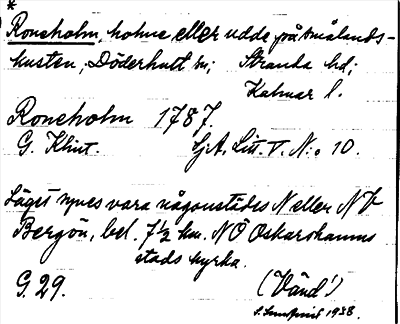 *
Roneholm, holme eller udde på Smålands-
kusten, Döderhult sn; Stranda hd;
Kalmar l.
Roneholm 1787.
G. Klint. SjA. Litt. V. N:o 10.
Läget synes vara någonstädes N eller NV
Bergön, bel. 7½ km. NÖ Oskarshamns
stads kyrka.
G. 29. (Vänd!)
1938.